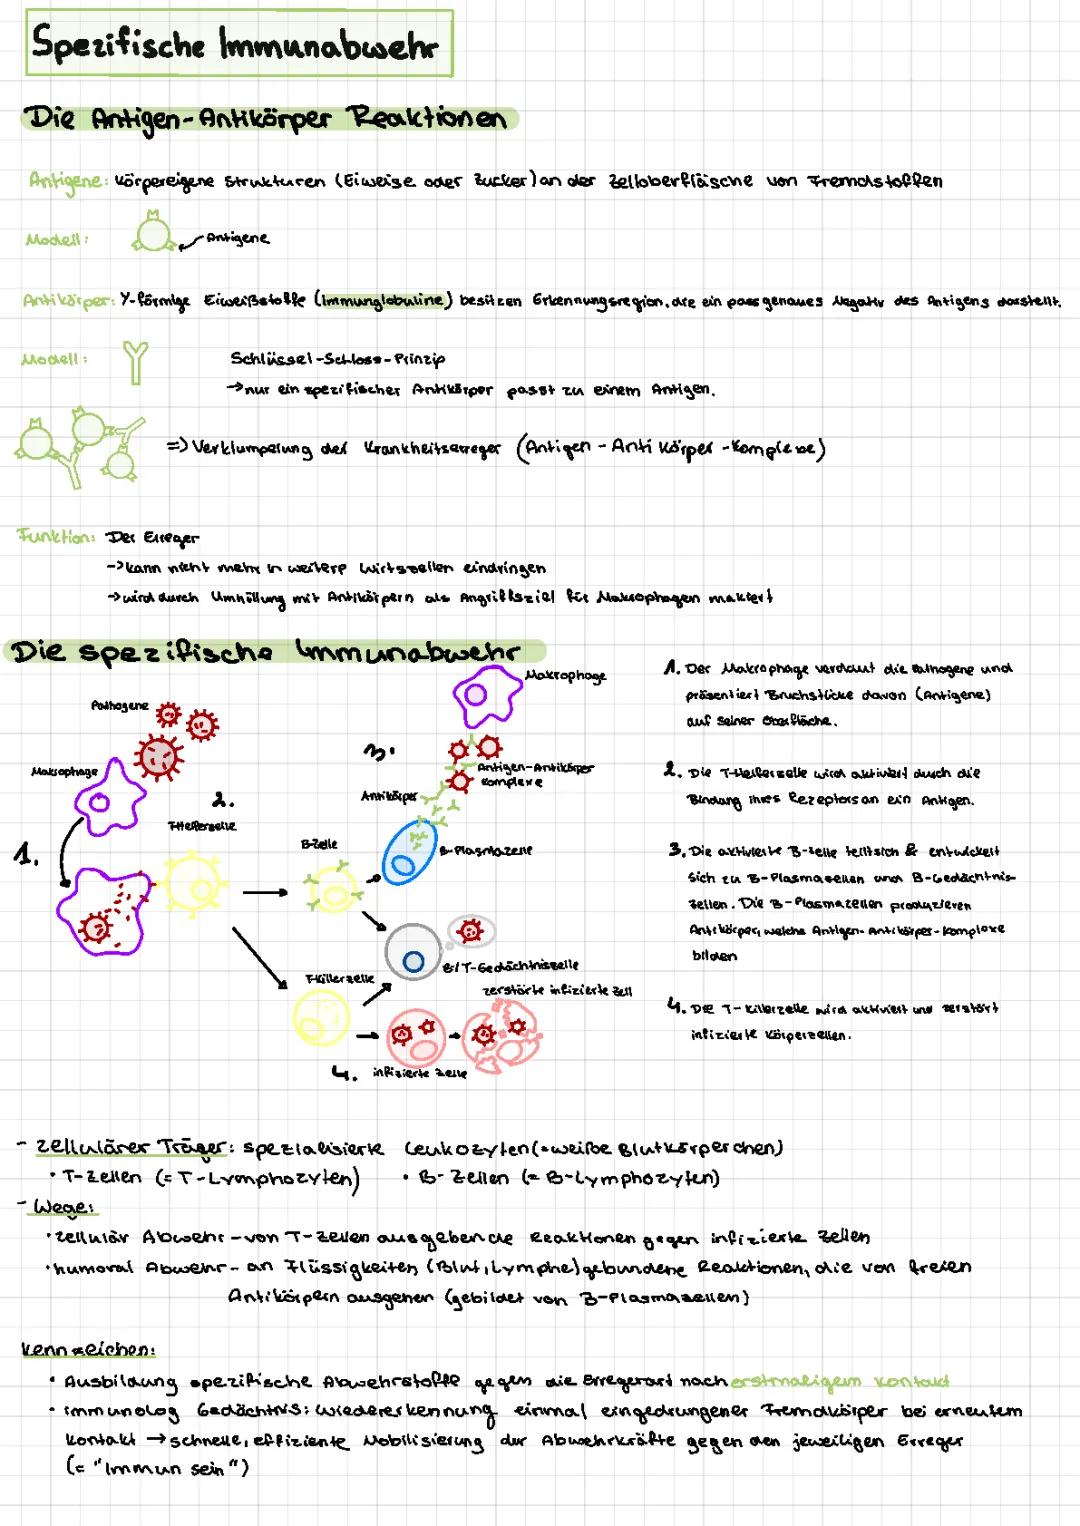 Spezifische Immunabwehr
Die Antigen-Antikörper Reaktionen
Antigene: Körpereigene Strukturen (Eiweise oder Zucker) an der Zelloberfläsche von Fremdstoffen
Modell:
Antigene
Antikörper: Y-förmige Eiweißstoffe (Immunglobuline) besitzen Erkennungsregion, die ein passgenaues Negativ des Antigens darstellt.
Modell:
Schlüssel-Schloss-Prinzip
→nur ein spezifischer Antikörper passt zu einem Antigen.
=> Verklumperung der Krankheitserreger (Antigen-Antikörper-Komplexe)
Funktion: Der Erreger
->kann nicht mehr in weitere Wirtszellen eindringen
->wird durch Umhüllung mit Antikörpern als Angriffsziel für Makrophagen makiert
Die spezifische Immunabwehr
Pathogene
Makrophage
1.
2.
T-Helferzelle
3.
Makrophage
Antigen-Antikörper
Komplexe
Antikörper
B-Zelle
B-Plasmazelle
B/T-Gedächtniszelle
T-Killerzelle
zerstörte infizierte Zell
4. infizierte Zelle
1. Der Makrophage verdaut die Pathogene und
präsentiert Bruchstücke davon (Antigene)
auf seiner Oberfläche.
2. Die T-Helferzelle wird aktiviert durch die
Bindung ihres Rezeptors an ein Antigen.
3. Die aktivierte B-Zelle teilt sich & entwickelt
sich zu B-Plasmazellen und B-Gedächtnis-
zellen. Die B-Plasmazellen produzieren
Antikörper, welche Antigen-Antikörper-Komplexe
bilden
4. Die T-Killerzelle wird aktiviert und zerstört
infizierte Körperzellen.
- zellulärer Träger: spezialisierte Leukozyten (=weiße Blutkörperchen)
• T-Zellen (= T-Lymphozyten) • B-Zellen (= B-Lymphozyten)
- Wege:
• zellulär Abwehr - von T-Zellen ausgebende Reaktionen gegen infizierte Zellen
• humoral Abwehr - an Flüssigkeiten (Blut, Lymphe) gebundene Reaktionen, die von freien
Antikörpern ausgehen (gebildet von B-Plasmazellen)
Kennzeichen:
• Ausbildung spezifische Abwehrstoffe gegen die Erregerart nach erstmaligem Kontakt
• immunolog Gedächtnis: Wiedererkennung einmal eingedrungener Fremdkörper bei erneutem
Kontakt → schnelle, effiziente Mobilisierung der Abwehrkräfte gegen den jeweiligen Erreger
(= "Immun sein")